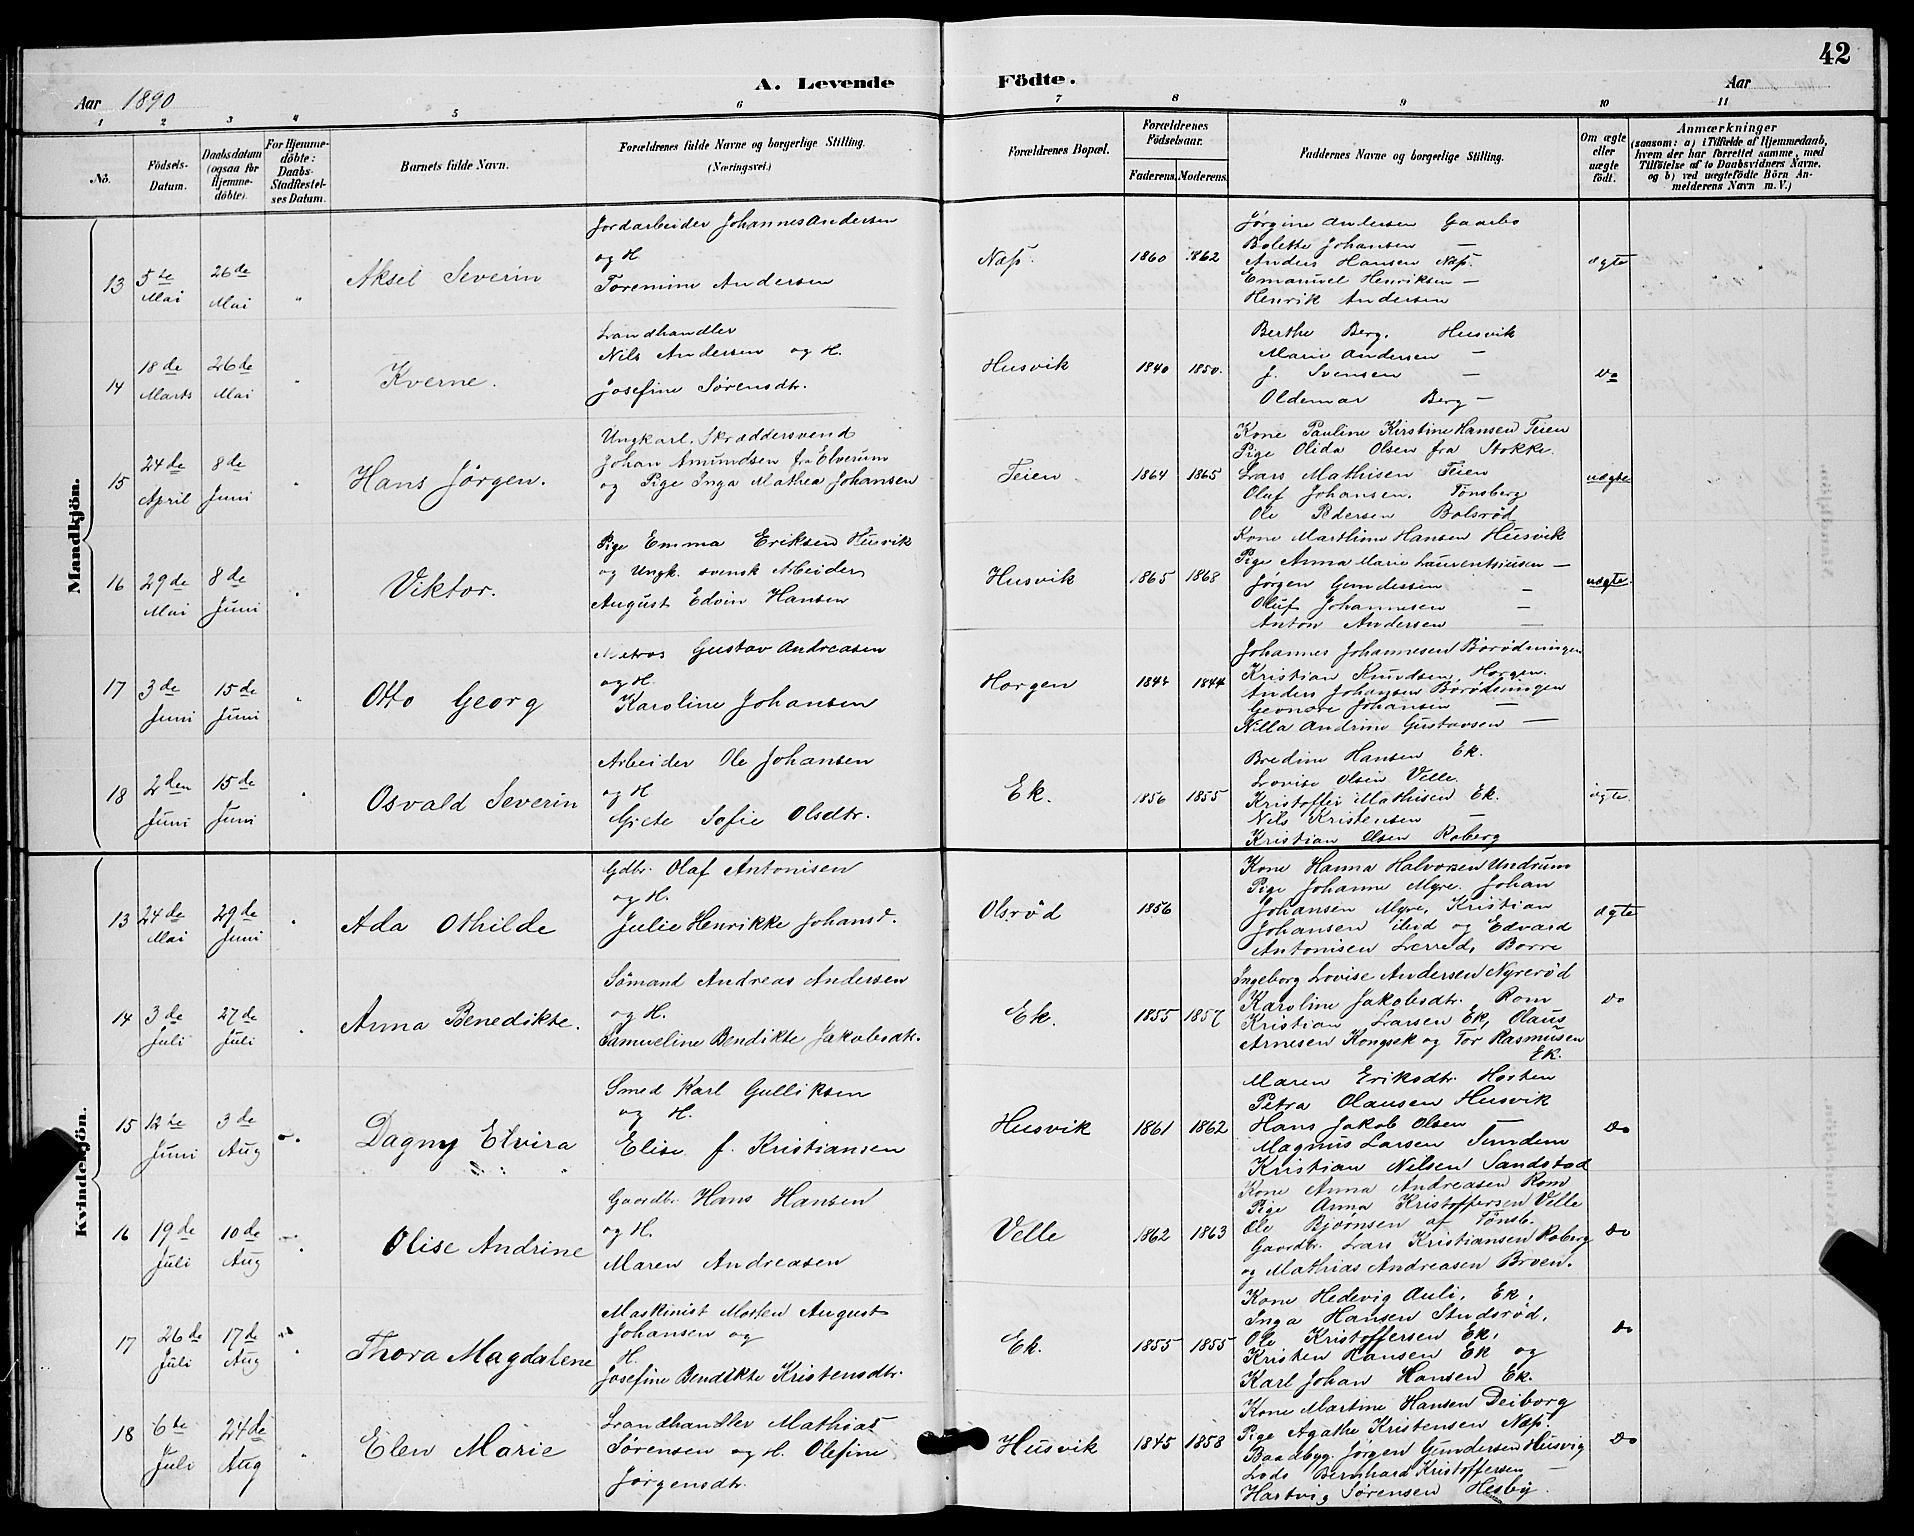 42
A. Levende Födte.
Aar 1890
Aar
1 2 3 4 5 6 7 8 9 10 11
No.
Födsels-Datum.
Daabsdatum (ogsaa for Hjemmedöbte).
For Hjemmedöbte: Daabs-Stadfæstelses Datum.
Barnets fulde Navn.
Forældrenes fulde Navne og borgerlige Stilling. (Næringsvei.)
Forældrenes Bopæl.
Forældrenes Födselsaar.
Faderens. Moderens.
Faddernes Navne og borgerlige Stilling.
Om ægte eller uægte födt.
Anmærkninger
(saasom: a) i Tilfælde af Hjemmedaab, hvem der har forrettet samme, med Tilföielse af to Daabsvidners Navne, og b) ved uægtefödte Börn Anmelderens Navn m. V.)
Mandkjön.
13 5te Mai 26de Mai " Aksel Severin
Jordarbeider Johannes Andersen
og H
Toremine Andersen
Næs. 1860 1862
Jørgine Andersen Gaarbo
Bolette Johansen —
Anders Hansen Næs.
Emanuel Henriksen —
Henrik Andersen
ægte
14 18de Marts 26de Mai " Kverne.
Landhandler
Nils Andersen og H.
Josefine Sørensdtr.
Husvik 1840 1850.
Berthe Berg. Husvik
Marie Andersen —
J. Svensen —
Oldemar Berg —
do
15 24de April 8de Juni " Hans Jörgen.
Ungkarl. Skræddersvend
Johan Amundsen fra Elverum
og Pige Inga Mathea Johansen
Teien 1864 1865
Kone Pauline Kirstine Hansen Teien
Pige Olida Olsen fra Stokke.
Lars Mathisen Teien
Oluf Johansen. Tønsberg
Ole Pedersen Bolsrød
uægte
16 29de Mai 8de Juni " Viktor.
Pige Emma Eriksen Husvik
og Ungk. svensk Arbeider
August Edvin Hansen
Husvik 1865 1868
Kone Marthine Hansen Husvik
Pige Anna Marie Laurentsiusen —
Jørgen Gundersen —
Oluf Johannesen —
Anton Andersen —
uægte.
17 3de Juni 15de Juni " Otto Georg
Matros Gustav Andreasen
og H.
Karoline Johansen
Horgen 1844
Johannes Johannesen Borødningen
Kristian Knudsen, Horgen.
Anders Johansen Borødningen
Johansen —
Nilla Andrine Gustavsen —
18 2den Juni 15de Juni " Osvald Severin
Arbeider Ole Johansen
og H
Grete Sofie Olsdtr.
Ek. 1856 1855
Bredine Hansen Ek.
Lovise Olsen Velle.
Kristoffer Mathisen Ek.
Nils Kristensen —
Kristian Olsen Roberg
ægte.
Kvindekjön.
13 24de Mai 29de Juni " Ada Othilde
Gdbr. Olaf Antonisen
og H.
Julie Henrikke Johansd.
Olsrød 1856
Kone Hanna Halvorsen Undrum
Pige Johanne Myre. Johan
Johansen Myre, Kristian
Johansen ibid og Edvard
Antonisen Lerred, Borre
ægte
14 3de Juli 27de Juli " Anna Benedikte.
Sömand Andreas Andersen
og H.
Samueline Bendikte Jakobsdtr.
Ek. 1855 1857
Ingeborg Lovise Andersen Nyrerød
Karoline Jakobsdtr. Rom
Kristian Larsen Ek, Olaus
Arnesen Kongsek og Tor Rasmusen
Ek.
do
15 12te Juni 3de Aug " Dagny Elvira
Smed Karl Gulliksen
og H.
Elise f. Kristiansen
Husvik 1861 1862
Maren Eriksdtr. Horten
Petra Olausen Husvik
Hans Jakob Olsen —
Magnus Larsen Sundem
Kristian Nilsen Sandstad
do
16 19de Juli 10de Aug " Olise Andrine
Gaardbr. Hans Hansen
og H.
Maren Andreasen
Velle 1862 1863
Kone Anna Andreasen Rom
Pige Anna Kristoffersen Velle
Ole Bjørnsen af Tønsb.
Gaardbr. Lars Kristiansen Roberg
og Mathias Andreasen Broen.
do
17 26de Juli 17de Aug " Thora Magdalene
Maskinist Morten August
Johansen og
H.
Josefine Bendikte Kristensdtr.
Ek. 1855 1855
Kone Hedevig Auli, Ek,
Inga Hansen Studsrød,
Ole Kristoffersen Ek,
Kristen Hansen Ek og
Karl Johan Hansen Ek.
do
18 6te Juli 24de Aug " Elen Marie
Landhandler Mathias
Sørensen og H. Olefine
Jørgensdtr.
Husvik 1845 1858
Kone Martine Hansen Deiborg
Pige Agathe Kristensen Næs.
Baadbyg. Jørgen Gundersen Husvig
Lods Bernhard Kristoffersen —
Hartvig Sørensen Hesby.
do